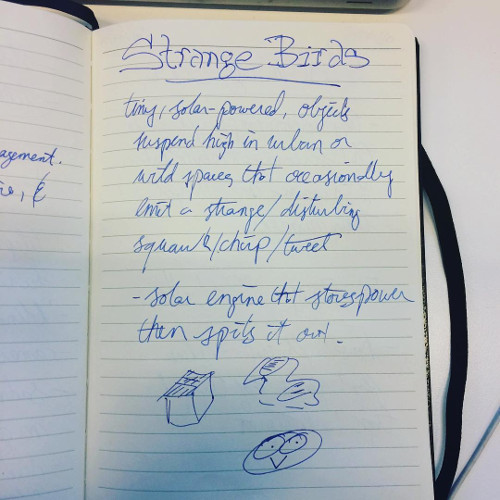 agement.
Strange Birds
tiny, solar-powered, objects
suspend high in urban or
wild spaces that occasionally
emit a strange/disturbing
squawk/chirp/tweet
- solar engine that stores power
then spits it out.